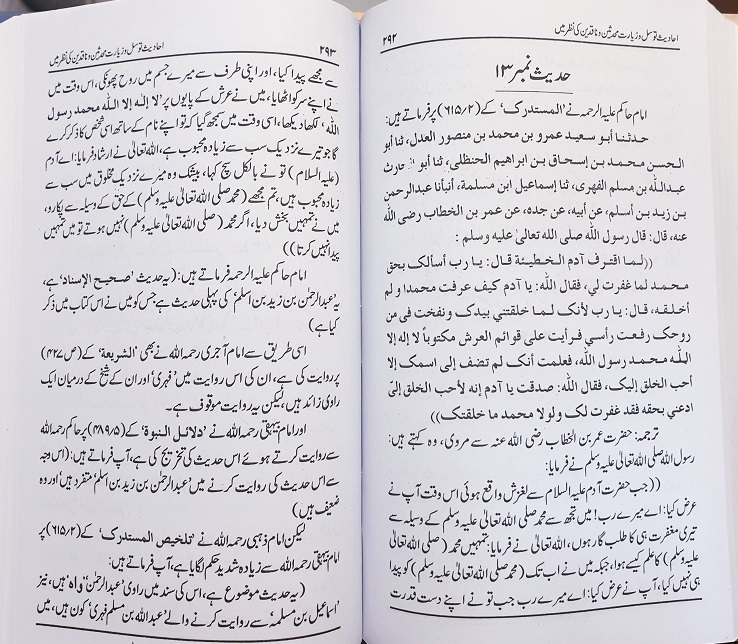 ۲۹۲ احادیث توسل و زیارت محدثین و ناقدین کی نظر میں
حدیث نمبر ۱۳
امام حاکم علیہ الرحمہ نے ’المستدرک‘ کے (۶۱۵/۲) پر فرماتے ہیں:
حدثنا أبو سعید عمرو بن محمد بن منصور العدل، ثنا أبو
الحسن محمد بن إسحاق بن ابراهیم الحنظلی، ثنا أبو الحارث
عبداللہ بن مسلم الفهری، ثنا إسماعیل ابن مسلمة، أنبأنا عبدالرحمن
بن زید بن أسلم، عن أبیه، عن جده، عن عمر بن الخطاب رضی اللہ
عنه، قال: قال رسول اللہ صلی اللہ تعالیٰ علیه وسلم:
((لـما اقترف آدم الخطیئة قال: یا رب أسألك بحق
محمد لما غفرت لي، فقال اللہ: یا آدم کیف عرفت محمدا و لم
أخلقه، قال: یا رب لأنك لما خلقتني بیدك و نفخت فی من
روحك رفعت رأسی فرأیت علی قوائم العرش مکتوباً لا إله إلا
اللہ محمد رسول اللہ، فعلمت أنك لم تضف إلی اسمك إلا
أحب الخلق إلیك، فقال اللہ: صدقت یا آدم إنه لأحب الخلق إليّ
ادعني بحقه فقد غفرت لك و لولا محمد ما خلقتك))
ترجمہ: حضرت عمر بن الخطاب رضی اللہ عنہ سے مروی، وہ کہتے ہیں:
رسول اللہ صلی اللہ تعالیٰ علیہ وسلم نے فرمایا:
((جب حضرت آدم علیہ السلام سے لغزش واقع ہوئی اس وقت آپ نے
عرض کیا: اے میرے رب! میں تجھ سے محمد صلی اللہ تعالیٰ علیہ وسلم کے وسیلہ سے
تیری مغفرت ہی کا طلب گار ہوں، اللہ تعالیٰ نے فرمایا: تمہیں محمد (صلی اللہ تعالیٰ علیہ
وسلم) کا علم کیسے ہوا، جبکہ میں نے اب تک (محمد صلی اللہ تعالیٰ علیہ وسلم) کو پیدا
ہی نہیں کیا، آپ نے عرض کیا: اے میرے رب جب تو نے اپنے دست قدرت
احادیث توسل و زیارت محدثین و ناقدین کی نظر میں ۲۹۳
سے مجھے پیدا کیا، اور اپنی طرف سے میرے جسم میں روح پھونکی، اس وقت میں
نے اپنے سر کو اٹھایا، میں نے عرش کے پایوں پر ’لا إله إلا اللہ محمد رسول
اللہ‘ لکھا دیکھا، اسی وقت میں سمجھ گیا کہ تو اپنے نام کے ساتھ اسی شخص کا ذکر کرے
گا جو تیرے نزدیک سب سے زیادہ محبوب ہے، اللہ تعالیٰ نے ارشاد فرمایا: اے آدم
(علیہ السلام) تو نے بالکل سچ کہا، بیشک وہ میرے نزدیک مخلوق میں سب سے
زیادہ محبوب ہیں، تم مجھے (محمد صلی اللہ تعالیٰ علیہ وسلم) کے حق کے وسیلہ سے پکارو،
میں نے تمہیں بخش دیا، اگر محمد (صلی اللہ تعالیٰ علیہ وسلم) نہیں ہوتے تو میں تمہیں
پیدا نہیں کرتا))
امام حاکم علیہ الرحمہ فرماتے ہیں: (یہ حدیث ’صحیح الإسناد‘ ہے،
یہ ’عبدالرحمٰن بن زید بن اسلم‘ کی پہلی حدیث ہے جس کو میں نے اس کتاب میں ذکر
کیا ہے)
اسی طریق سے امام آجری رحمہ اللہ نے بھی ’الشریعة‘ کے (ص ۴۲۷)
پر روایت کی ہے، ان کی اس روایت میں ’فہری‘ اور ان کے شیخ کے درمیان ایک
راوی زائد ہیں، لیکن یہ روایت موقوف ہے۔
اور امام بیہقی رحمہ اللہ نے ’دلائل النبوة‘ کے (۴۸۹/۵) پر حاکم رحمہ اللہ
سے روایت کرتے ہوئے اس حدیث کی تخریج کی ہے، آپ فرماتے ہیں: (اس وجہ
سے اس حدیث کی روایت کرنے میں ’عبدالرحمٰن بن زید بن اسلم‘ متفرد ہیں اور وہ
ضعیف ہیں)
لیکن امام ذہبی رحمہ اللہ نے ’تلخیص المستدرك‘ کے (۶۱۵/۲) پر
امام بیہقی رحمہ اللہ سے زیادہ شدید حکم لگایا ہے، آپ فرماتے ہیں:
(یہ حدیث موضوع ہے، اس کی سند میں راوی ’عبدالرحمٰن‘ ’واہ‘ ہیں، نیز
’اسماعیل بن مسلمہ‘ سے روایت کرنے والے ’عبداللہ بن مسلم فہری‘ کون ہیں، میں